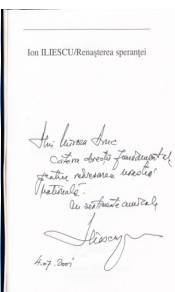 Ion ILIESCU/Renașterea speranței
Lui Mircea Druc
Câteva direcții fundamentale
pentru redresarea noastră
națională.
Cu sentimente amicale
Iliescu
4.07.2001